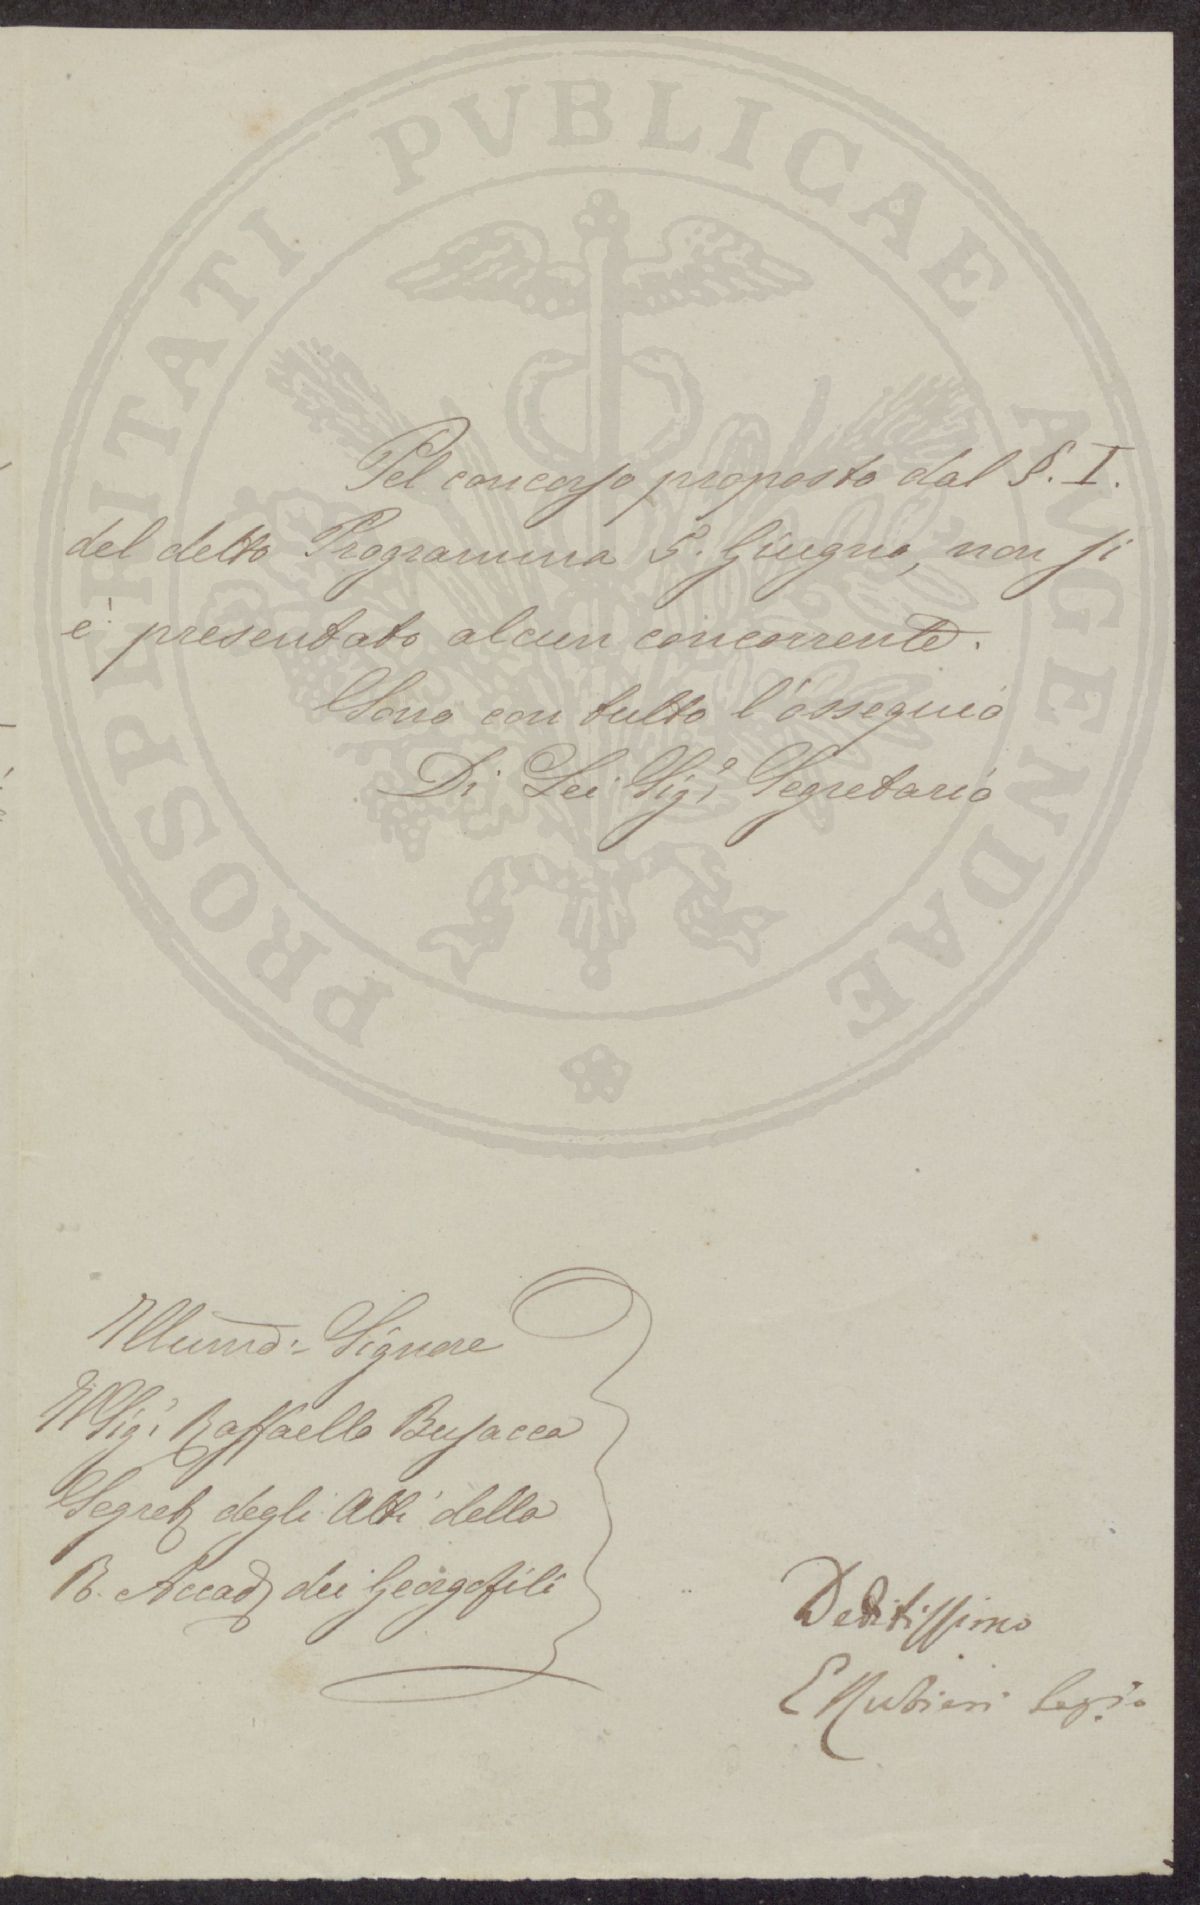 PROSPERITATI PVBLICAE AVGENDAE
Pel concorso proposto dal §. I.
del detto Programma 5. Giugno, non si
è presentato alcun concorrente.
Sono con tutto l'ossequio
Di Lei Sig.r Segretario
Illumo:- Signore
Il Sig.r Raffaello Busacca
Segret degli Atti della
R. Accad dei Georgofili
Devotissimo
E Rubieri